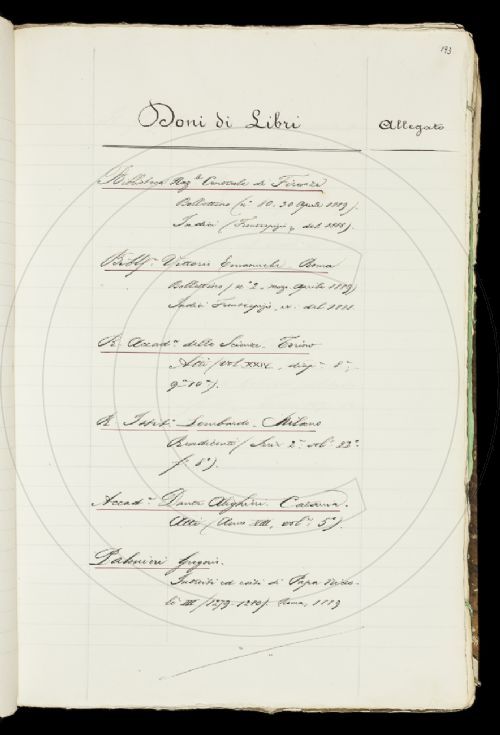 193
Doni di Libri
Allegato
Biblioteca Naz.le Centrale di Firenze
Bollettino (n° 80. 30 Aprile 1889).
Indici (Frontespizio, del 1888).
Bibl. Vittorio Emanuele Roma
Bollettino (n° 2. marz. Aprile 1889)
Indici Frontespizio, del 1888.
R. Accad.a delle Scienze. Torino
Atti (Vol. XXIV, disp. 8a,
9a 10a).
R. Istit.o Lombardo. Milano
Rendiconti (Serie 2a. vol. 22°.
f. 8°).
Accad.a Dante Alighieri. Catania.
Atti (Anno VIII, vol. 5°).
Palmieri Gregorio.
Introiti ed esiti di Papa Nicco-
lò III (1279-1280). Roma, 1889